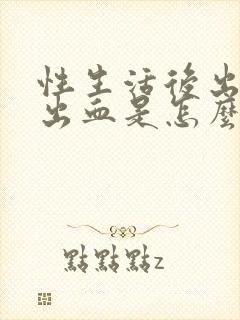 性生活後出
出血是怎麼
點點點z